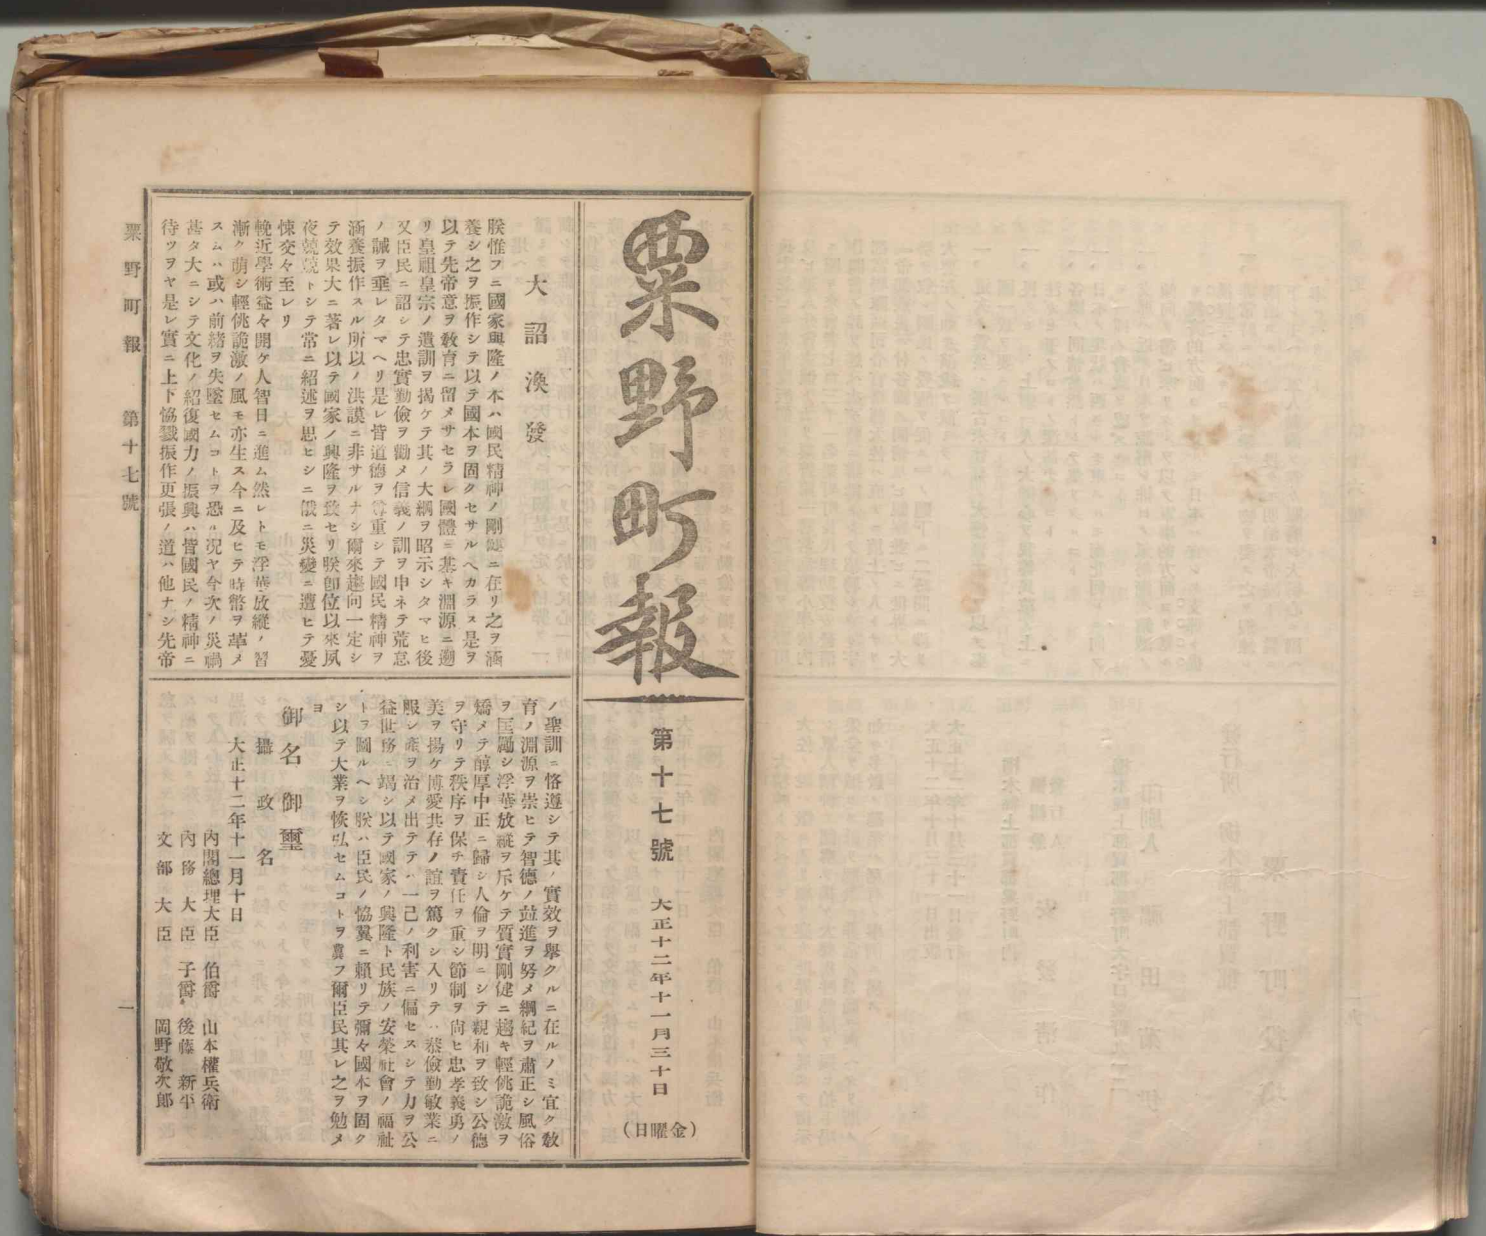 粟野町報
第十七號
大正十二年十一月三十日
(金曜日)
大詔渙發
朕惟フニ國家興隆ノ本ハ國民精神ノ剛健ニ在リ之ヲ涵
養シ之ヲ振作シテ以テ國本ヲ固クセサルヘカラス是ヲ
以テ先帝意ヲ敎育ニ留メサセラレ國體ニ基キ淵源ニ遡
リ皇祖皇宗ノ遺訓ヲ揭ケテ其ノ大綱ヲ昭示シタマヒ後
又臣民ニ詔シテ忠實勤儉ヲ勸メ信義ノ訓ヲ申ネテ荒怠
ノ誡ヲ垂レタマヘリ是レ皆道德ヲ尊重シテ國民精神ヲ
涵養振作スル所以ノ洪謨ニ非サルナシ爾來趨向一定シ
テ效果大ニ著レ以テ國家ノ興隆ヲ致セリ朕卽位以來夙
夜兢兢トシテ常ニ紹述ヲ思ヒシニ俄ニ災變ニ遭ヒテ憂
悚交々至レリ
輓近學術益々開ケ人智日ニ進ム然レトモ浮華放縱ノ習
漸ク萌シ輕佻詭激ノ風モ亦生ス今ニ及ヒテ時幣ヲ革メ
スムハ或ハ前緖ヲ失墜セムコトヲ恐ル況ヤ今次ノ災禍
甚タ大ニシテ文化ノ紹復國力ノ振興ハ皆國民ノ精神ニ
待ツヲヤ是レ實ニ上下協戮振作更張ノ道ハ他ナシ先帝
ノ聖訓ニ恪遵シテ其ノ實效ヲ擧クルニ在ルノミ宜ク敎
育ノ淵源ヲ崇ヒテ智德ノ竝進ヲ努メ綱紀ヲ肅正シ風俗
ヲ匡勵シ浮華放縱ヲ斥ケテ質實剛健ニ趨キ輕佻詭激ヲ
矯メテ醇厚中正ニ歸シ人倫ヲ明ニシテ親和ヲ致シ公德
ヲ守リテ秩序ヲ保チ責任ヲ重シ節制ヲ尙ヒ忠孝義勇ノ
美ヲ揚ケ博愛共存ノ誼ヲ篤クシ入リテハ恭儉勤敏業ニ
服シ產ヲ治メ出テテハ一己ノ利害ニ偏セスシテ力ヲ公
益世務ニ竭シ以テ國家ノ興隆ト民族ノ安榮社會ノ福祉
トヲ圖ルヘシ朕ハ臣民ノ協翼ニ賴リテ彌々國本ヲ固ク
シ以テ大業ヲ恢弘セムコトヲ冀フ爾臣民其レ之ヲ勉メ
ヨ
御名御璽
攝政名
大正十二年十一月十日
內閣總理大臣 伯爵 山本權兵衛
內務大臣 子爵 後藤新平
文部大臣 岡野敬次郞
粟野町報 第十七號 一